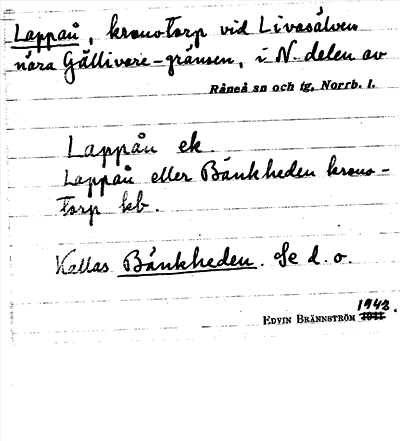 Lappån, kronotorp vid Livasälven
nära Gällivare-gränsen, i N. delen av
Råneå sn och tg, Norrb. l.
Lappån ek.
Lappån eller Bänkheden krono-
torp kb.
Kallas Bänkheden. Se d. o.
1943.
EDVIN BRÄNNSTRÖM